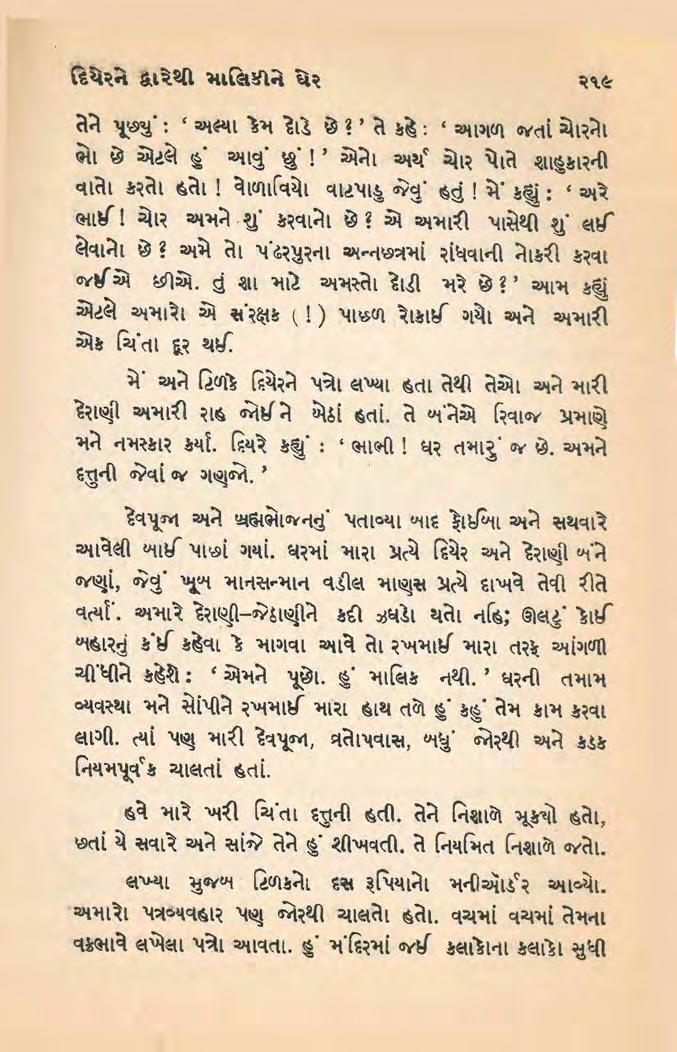 દિયેરને દ્વારેથી માલિકીને ઘેર ૨૧૯
તેને પૂછ્યું : ‘ અલ્યા કેમ દોડે છે ? ’ તે કહે : ‘ આગળ જતાં ચોરનો
ભો છે એટલે હું આવું છું ! ’ એનો અર્થ ચોર પોતે શાહુકારની
વાતો કરતો હતો ! વોળાવિયો વાટપાડુ જેવું હતું ! મેં કહ્યું : ‘ અરે
ભાઈ ! ચોર અમને શું કરવાનો છે ? એ અમારી પાસેથી શું લઈ
લેવાનો છે ? અમે તો પંઢરપુરના અન્નછત્રમાં રાંધવાની નોકરી કરવા
જઈએ છીએ. તું શા માટે અમસ્તો દોડી મરે છે ? ’ આમ કહ્યું
એટલે અમારો એ સંરક્ષક ( ! ) પાછળ રોકાઈ ગયો અને અમારી
એક ચિંતા દૂર થઈ.
મેં અને ટિળકે દિયેરને પત્રો લખ્યા હતા તેથી તેઓ અને મારી
દેરાણી અમારી રાહ જોઈને બેઠાં હતાં. તે બંનેએ રિવાજ પ્રમાણે
મને નમસ્કાર કર્યા. દિયરે કહ્યું : ‘ ભાભી ! ઘર તમારું જ છે. અમને
દત્તુની જેવાં જ ગણજો. ’
દેવપૂજા અને બ્રહ્મભોજનનું પતાવ્યા બાદ ફોઈબા અને સથવારે
આવેલી બાઈ પાછાં ગયાં. ઘરમાં મારા પ્રત્યે દિયેર અને દેરાણી બંને
જણાં, જેવું ખૂબ માનસન્માન વડીલ માણસ પ્રત્યે દાખવે તેવી રીતે
વર્ત્યાં. અમારે દેરાણી–જેઠાણીને કદી ઝઘડો થતો નહિ; ઊલટું કોઈ
બહારનું કંઈ કહેવા કે માગવા આવે તો રખમાઈ મારા તરફ આંગળી
ચીંધીને કહેશે : ‘ એમને પૂછો. હું માલિક નથી. ’ ઘરની તમામ
વ્યવસ્થા મને સોંપીને રખમાઈ મારા હાથ તળે હું કહું તેમ કામ કરવા
લાગી. ત્યાં પણ મારી દેવપૂજા, વ્રતોપવાસ, બધું જોરથી અને કડક
નિયમપૂર્વક ચાલતાં હતાં.
હવે મારે ખરી ચિંતા દત્તુની હતી. તેને નિશાળે મૂક્યો હતો,
છતાં યે સવારે અને સાંજે તેને હું શીખવતી. તે નિયમિત નિશાળે જતો.
લખ્યા મુજબ ટિળકનો દસ રૂપિયાનો મનીઑર્ડર આવ્યો.
અમારો પત્રવ્યવહાર પણ જોરથી ચાલતો હતો. વચમાં વચમાં તેમના
વક્રભાવે લખેલા પત્રો આવતા. હું મંદિરમાં જઈ કલાકોના કલાકો સુધી